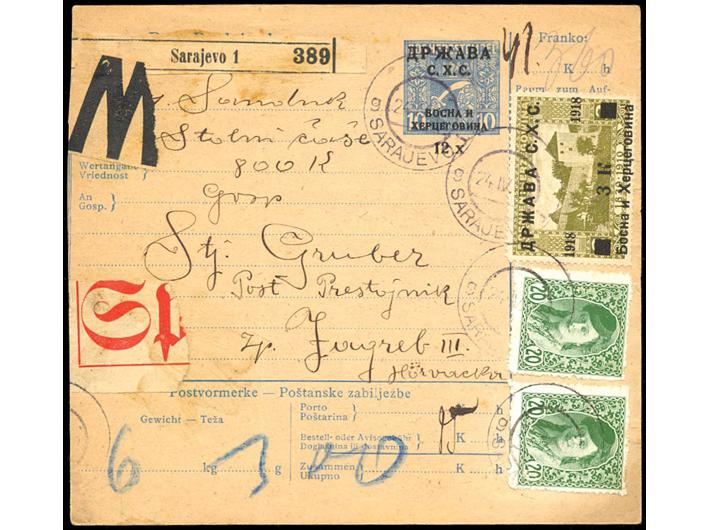 Sarajevo 1 389
W
ДРЖАВА
С. Х. С.
10 10
БОСНА И
ХЕРЦЕГОВИНА
12 x
Franko:
K h
Raum zum Auf-
Stolni
800 K
Wertangabe
Vriednost
An
Gosp.
Gosp
Stj. Gruber
Post Prestojnik
Zagreb III.
Hörvacka
ДРЖАВА С.Х.С.
1918 3 K 1918
Босна и Херцеговина
9 SARAJEVO
24.IV
9 SARAJEVO
20 20
20 20
Postvormerke — Poštanske zabilježbe
Gewicht — Teža
kg g
Porto
Poštarina
h
Bestell- oder Avisogebühr
Doglasnina ili dostavnina
K h
Zusammen
Ukupno
K h
6 3 00